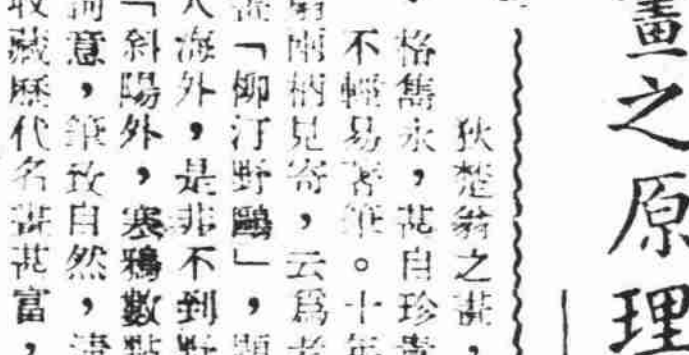 畫之原理
狄楚翁之畫，
格雋永，甚自珍貴
不輕易著筆。十年
扇兩柄見寄，云爲老
畫「柳汀野鷗」，題
人海外，是非不到野
「斜陽外，寒鴉數點
詞意，筆致自然，清
收藏歷代名畫甚富，